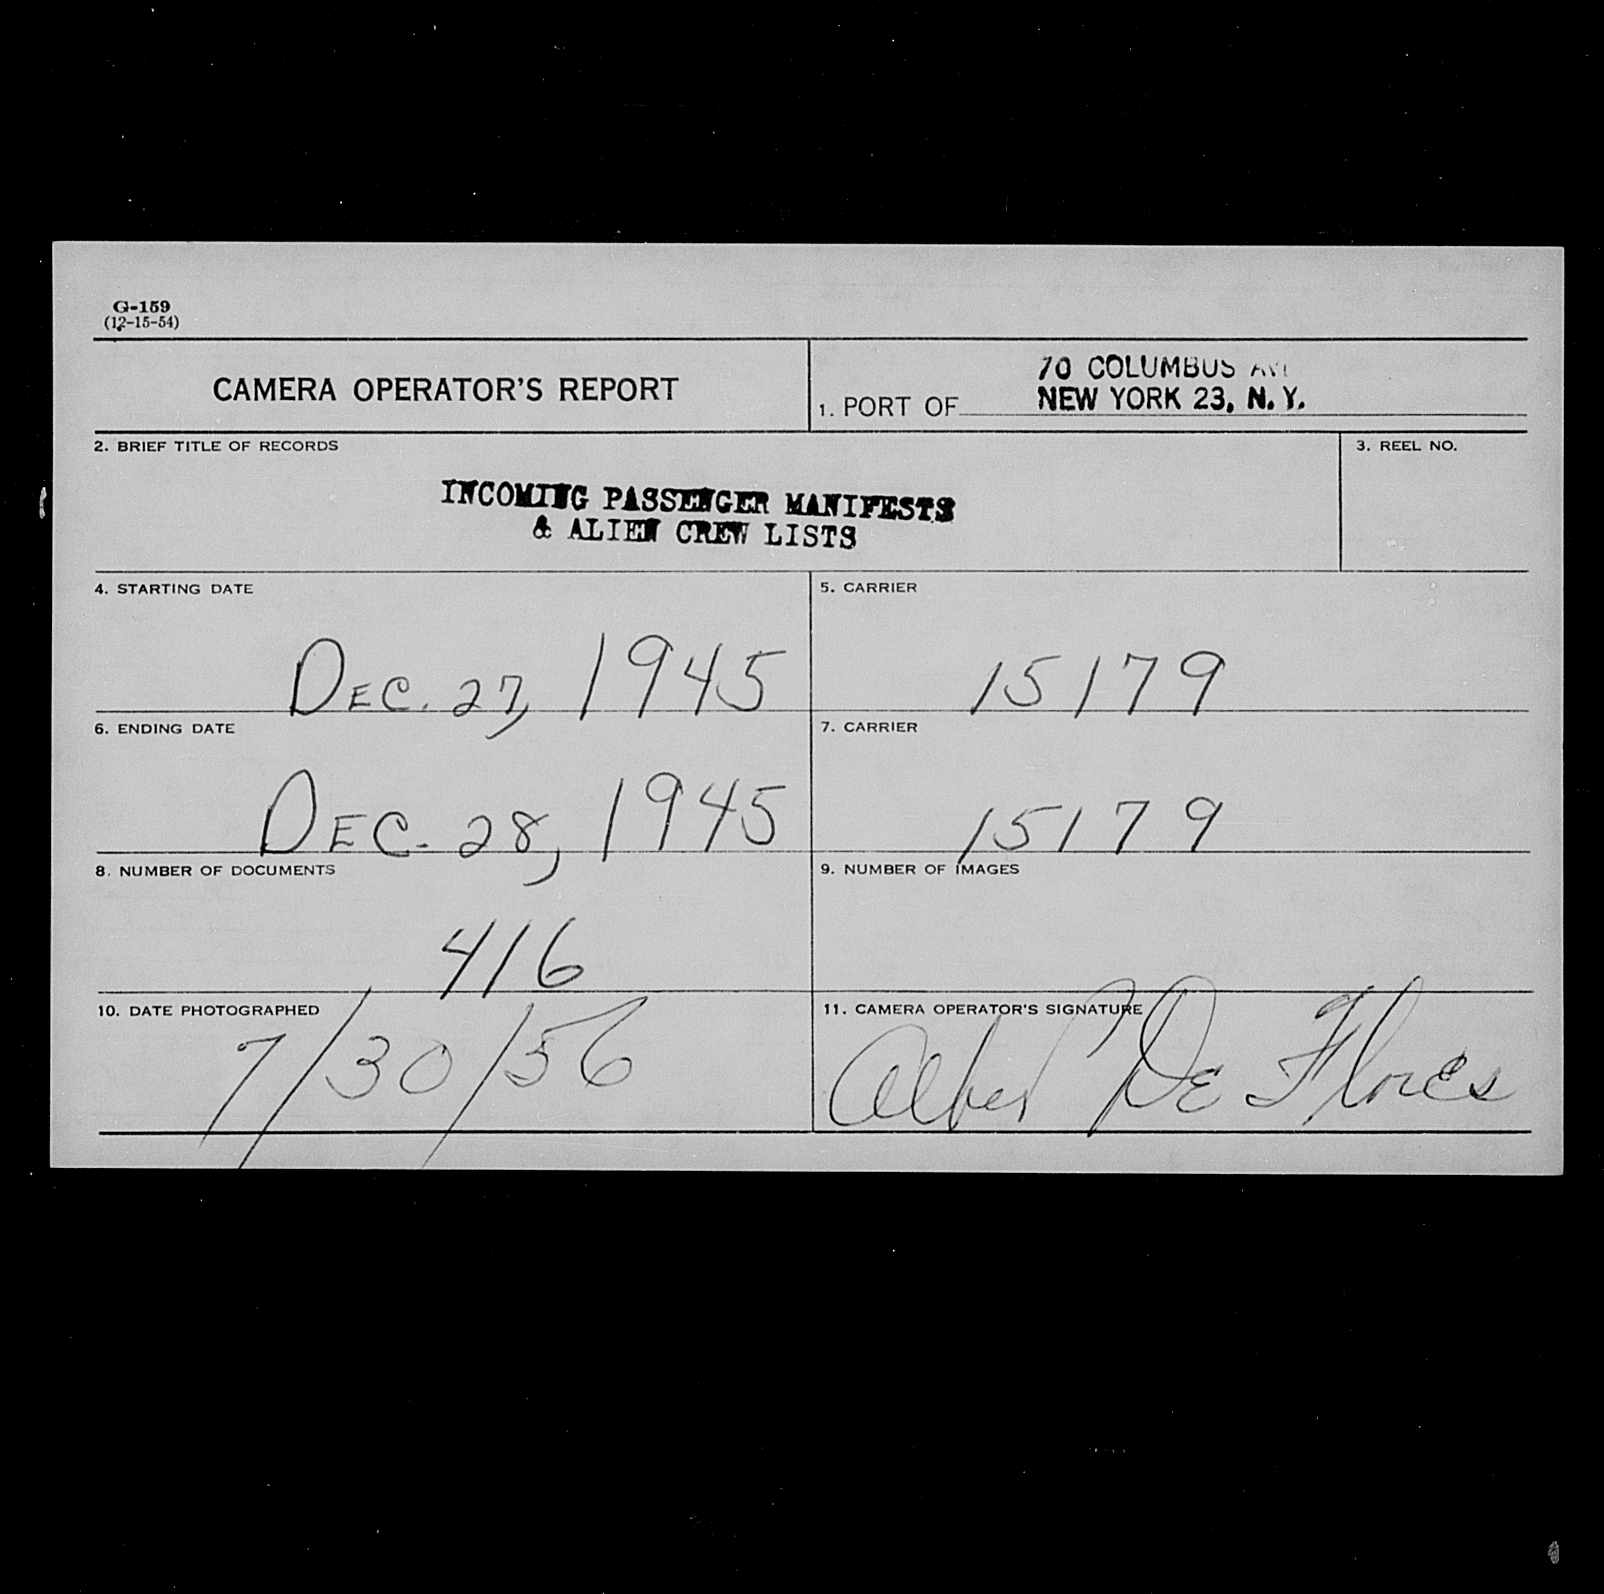 G-159
(12-15-54)
CAMERA OPERATOR'S REPORT
1. PORT OF
70 COLUMBUS AVE
NEW YORK 23, N.Y.
2. BRIEF TITLE OF RECORDS
3. REEL NO.
INCOMING PASSENGER MANIFESTS
& ALIEN CREW LISTS
4. STARTING DATE
DEC. 27, 1945
5. CARRIER
15179
6. ENDING DATE
DEC. 28, 1945
7. CARRIER
15179
8. NUMBER OF DOCUMENTS
416
9. NUMBER OF IMAGES
10. DATE PHOTOGRAPHED
7/30/56
11. CAMERA OPERATOR'S SIGNATURE
De Flores